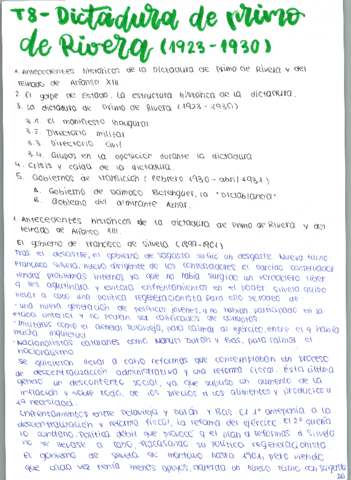 T8- Dictadura de primo
de Rivera (1923-1930)
1. Antecedentes históricos de la Dictadura de Primo de Rivera y del
reinado de Alfonso XIII
2. El golpe de Estado. La estructura histórica de la dictadura.
3. La dictadura de Primo de Rivera (1923-1930)
3.1. El manifiesto inaugural
3.2. Directorio militar
3.3. Directorio civil
3.4. Grupos en la oposición durante la dictadura
4. Crisis y caída de la dictadura.
5. Gobiernos de transición (febrero 1930 - abril 1931)
A. Gobierno de Dámaso Berenguer, la "Dictablanda"
B. Gobierno del almirante Aznar.
1. Antecedentes históricos de la dictadura de Primo de Rivera y del
reinado de Alfonso XIII.
El gobierno de Francisco de Silvela (1899-1901)
Tras el desastre, el gobierno de Sagasta sufrió un desgaste. Nuevo turno:
Francisco Silvela, nuevo dirigente de los conservadores. El partido conservador
tendrá problemas internos ya que no había surgido un verdadero líder
y les aglutinada y evitara enfrentamientos en el poder. Silvela quiso
llevar a cabo una política regeneracionista para ello se rodeó de:
- una nueva generación de políticos jóvenes, q no habían participado en la
etapa anterior y no podían ser calificados de
- Militares como el General Polavieja, para calmar al ejército, entre el q había
mucha inquietud
- Nacionalistas catalanes como Manuel Durán y Bas, para calmar el
nacionalismo
Se quisieron llevar a cabo reformas que contemplaban un proceso
de descentralización administrativa y una reforma fiscal. Esta última
generó un descontento social, ya que supuso un aumento de la
inflación y sobre todo, de los precios a los alimentos y productos a
1ª necesidad.
Enfrentamientos entre Polavieja y Durán y Bas. El 1º anteponía a la
descentralización y reforma fiscal, la reforma del ejército. El 2º quería
lo contrario. Política débil que provocó q el plan a reformas a Silvela
no se llevase a cabo, fracasando su política regeneracionista.
El gobierno de Silvela se mantuvo hasta 1901, pero viendo
que cada vez tenía menos apoyos, pactará un nuevo turno con Sagasta